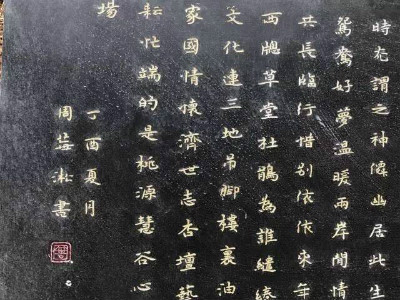 時充謂之神僊幽居此生
鴛鴦好夢溫暖兩岸閒情
共長臨行惜別依依來年
西牕草堂杜鵑為誰繾
文化連三地吊腳樓裏油
家國情懷濟世志杏壇藝
耘忙端的是桃源慧谷心
場
丁酉夏月
周淞書